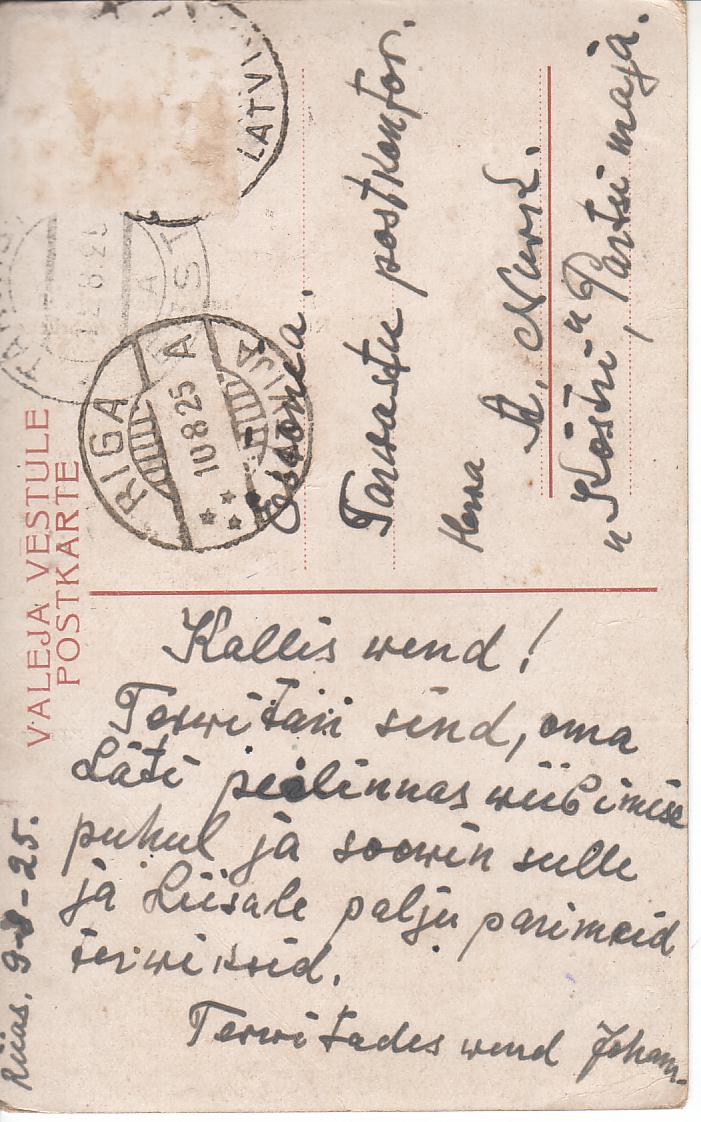 VALEJA VESTULE
POSTKARTE
LATVI
RIGA
A
10 8 25
Eestimaa.
Tarwastu postkontor.
Herra
"Köstri" Partsi maja.
Kallis wend!
Terwitan sind, oma
Läti pealinnas wiibimise
puhul ja soowin sulle
ja Liisale palju parimaid
terwiseid.
Terwitades wend Johan.
Riias. 9-8-25.